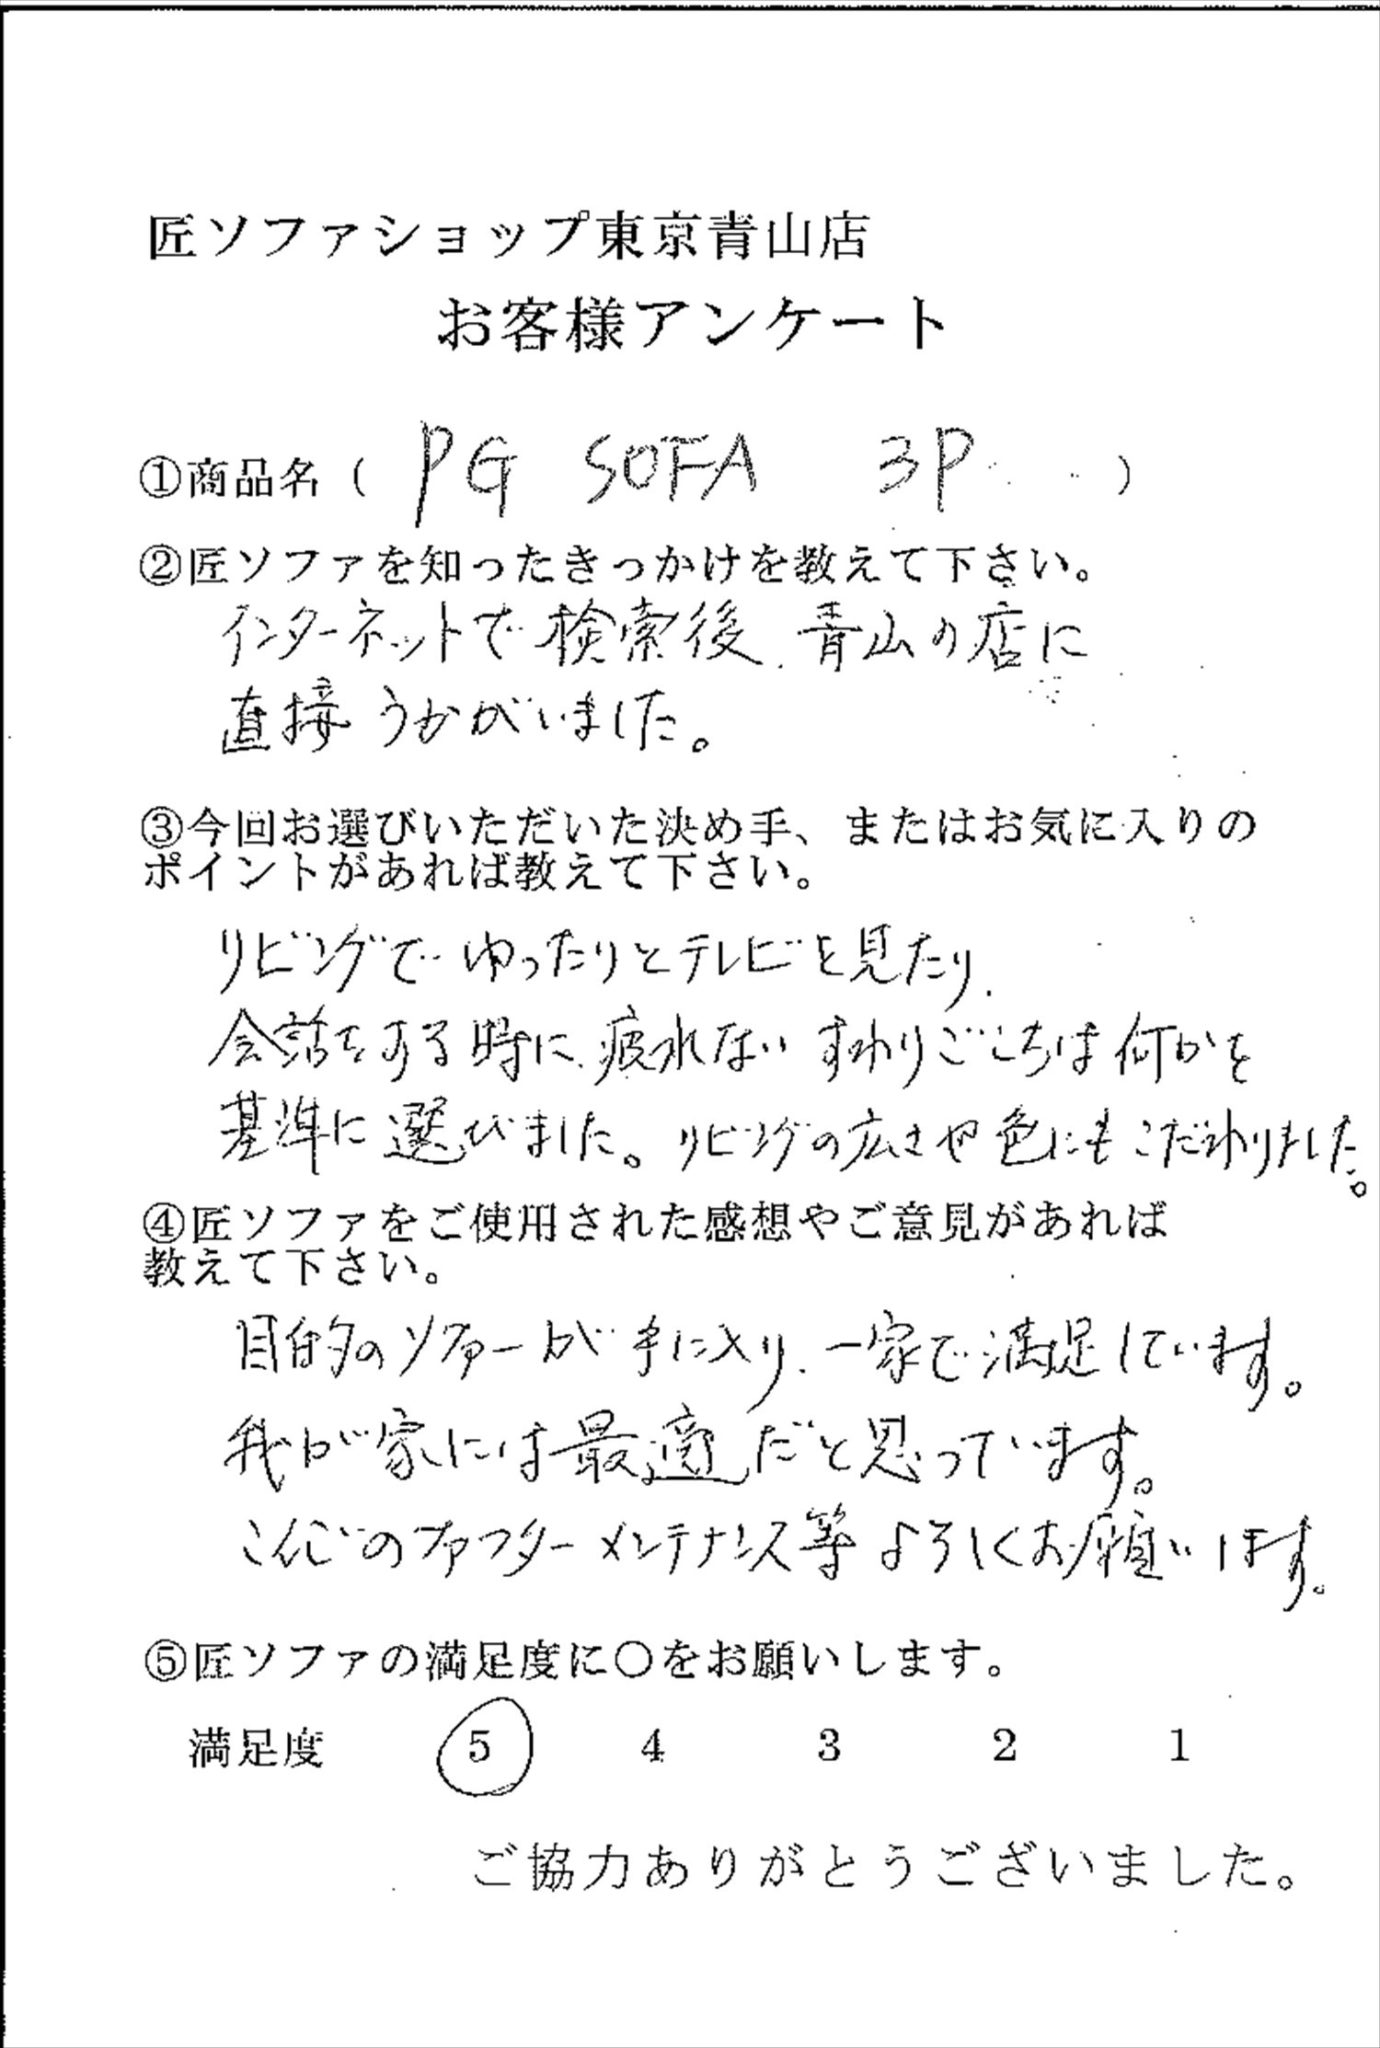 匠ソファショップ東京青山店
お客様アンケート
①商品名( PG SOFA 3P )
②匠ソファを知ったきっかけを教えて下さい。
インターネットで検索後、青山の店に
直接うかがいました。
③今回お選びいただいた決め手、またはお気に入りの
ポイントがあれば教えて下さい。
リビングでゆったりとテレビを見たり、
会話をする時に、疲れないすわりごこちは何かを
基準に選びました。リビングの広さや色にもこだわりました。
④匠ソファをご使用された感想やご意見があれば
教えて下さい。
目的のソファーが手に入り、一家で満足しています。
我が家には最適だと思っています。
こんごのアフターメンテナンス等よろしくお願いします。
⑤匠ソファの満足度に〇をお願いします。
満足度 5 4 3 2 1
ご協力ありがとうございました。